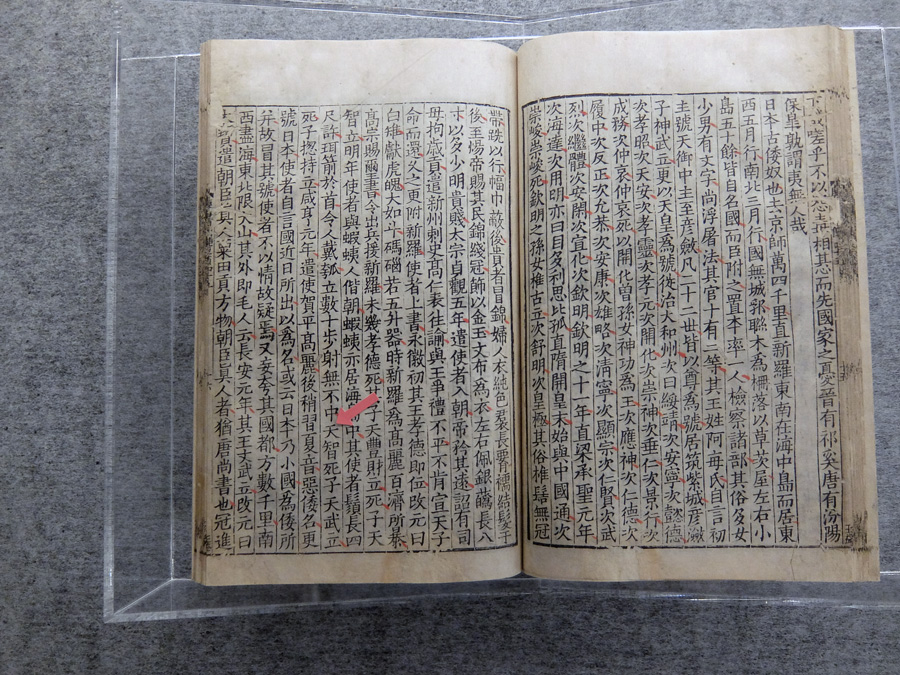 嗟乎不以怨毒相惎而先國家之憂晉有祁奚唐有汾陽
保皐孰謂夷無人哉
日本古倭奴也去京師萬四千里直新羅東南在海中島而居東
西五月行南北三月行國無城郛聯木為柵落以草茨屋左右小
島五十餘皆自名國而臣附之置本率一人檢察諸部其俗多女
小男有文字尚浮屠法其官十有二等其王姓阿每氏自言初
主號天御中主至彥瀲凡三十二世皆以尊為號居筑紫城彥瀲
子神武立更以天皇為號徙治大和州次曰綏靖次安寧次懿德
次孝昭次天安次孝靈次孝元次開化次崇神次垂仁次景行次
成務次仲哀仲哀死以開化曾孫女神功為王次應神次仁德次
履中次反正次允恭次安康次雄略次清寧次顯宗次仁賢次武
烈次繼體次安閒次宣化次欽明欽明之十一年直梁承聖元年
次海達次用明亦曰目多利思比孤直隋開皇末始與中國通次
崇峻崇峻死欽明之孫女雄古立次舒明次皇極其俗椎髻無冠
帶跣以行幅巾蔽後貴者冒錦婦人衣純色裙長腰襦結髮于
後至煬帝賜其民錦綫冠飾以金玉文布為衣左右佩銀蘤長八
寸以多少明貴賤太宗貞觀五年遣使者入朝帝矜其遠詔有司
毋拘歲貢遣新州刺史高仁表往諭與王爭禮不平不肯宣天子
命而還久之更附新羅使者上書永徽初其王孝德即位改元曰
白雉獻虎魄大如斗碼碯若五升器時新羅為高麗百濟所暴
高宗賜璽書令出兵援新羅未幾孝德死其子天豐財立死子天
智立明年使者與蝦蛦人偕朝蝦蛦亦居海島中其使者鬚長四
尺許珥箭於首令人戴瓠立數十步射無不中天智死子天武立
死子揔持立咸亨元年遣使賀平高麗後稍習夏音惡倭名更
號日本使者自言國近日所出以為名或云日本乃小國為倭所
并故冒其號使者不以情故疑焉又妄夸其國都方數千里南
西盡海東北限大山其外即毛人云長安元年其王文武立改元曰
太寶遣朝臣真人粟田貢方物朝臣真人者猶唐尚書也冠進